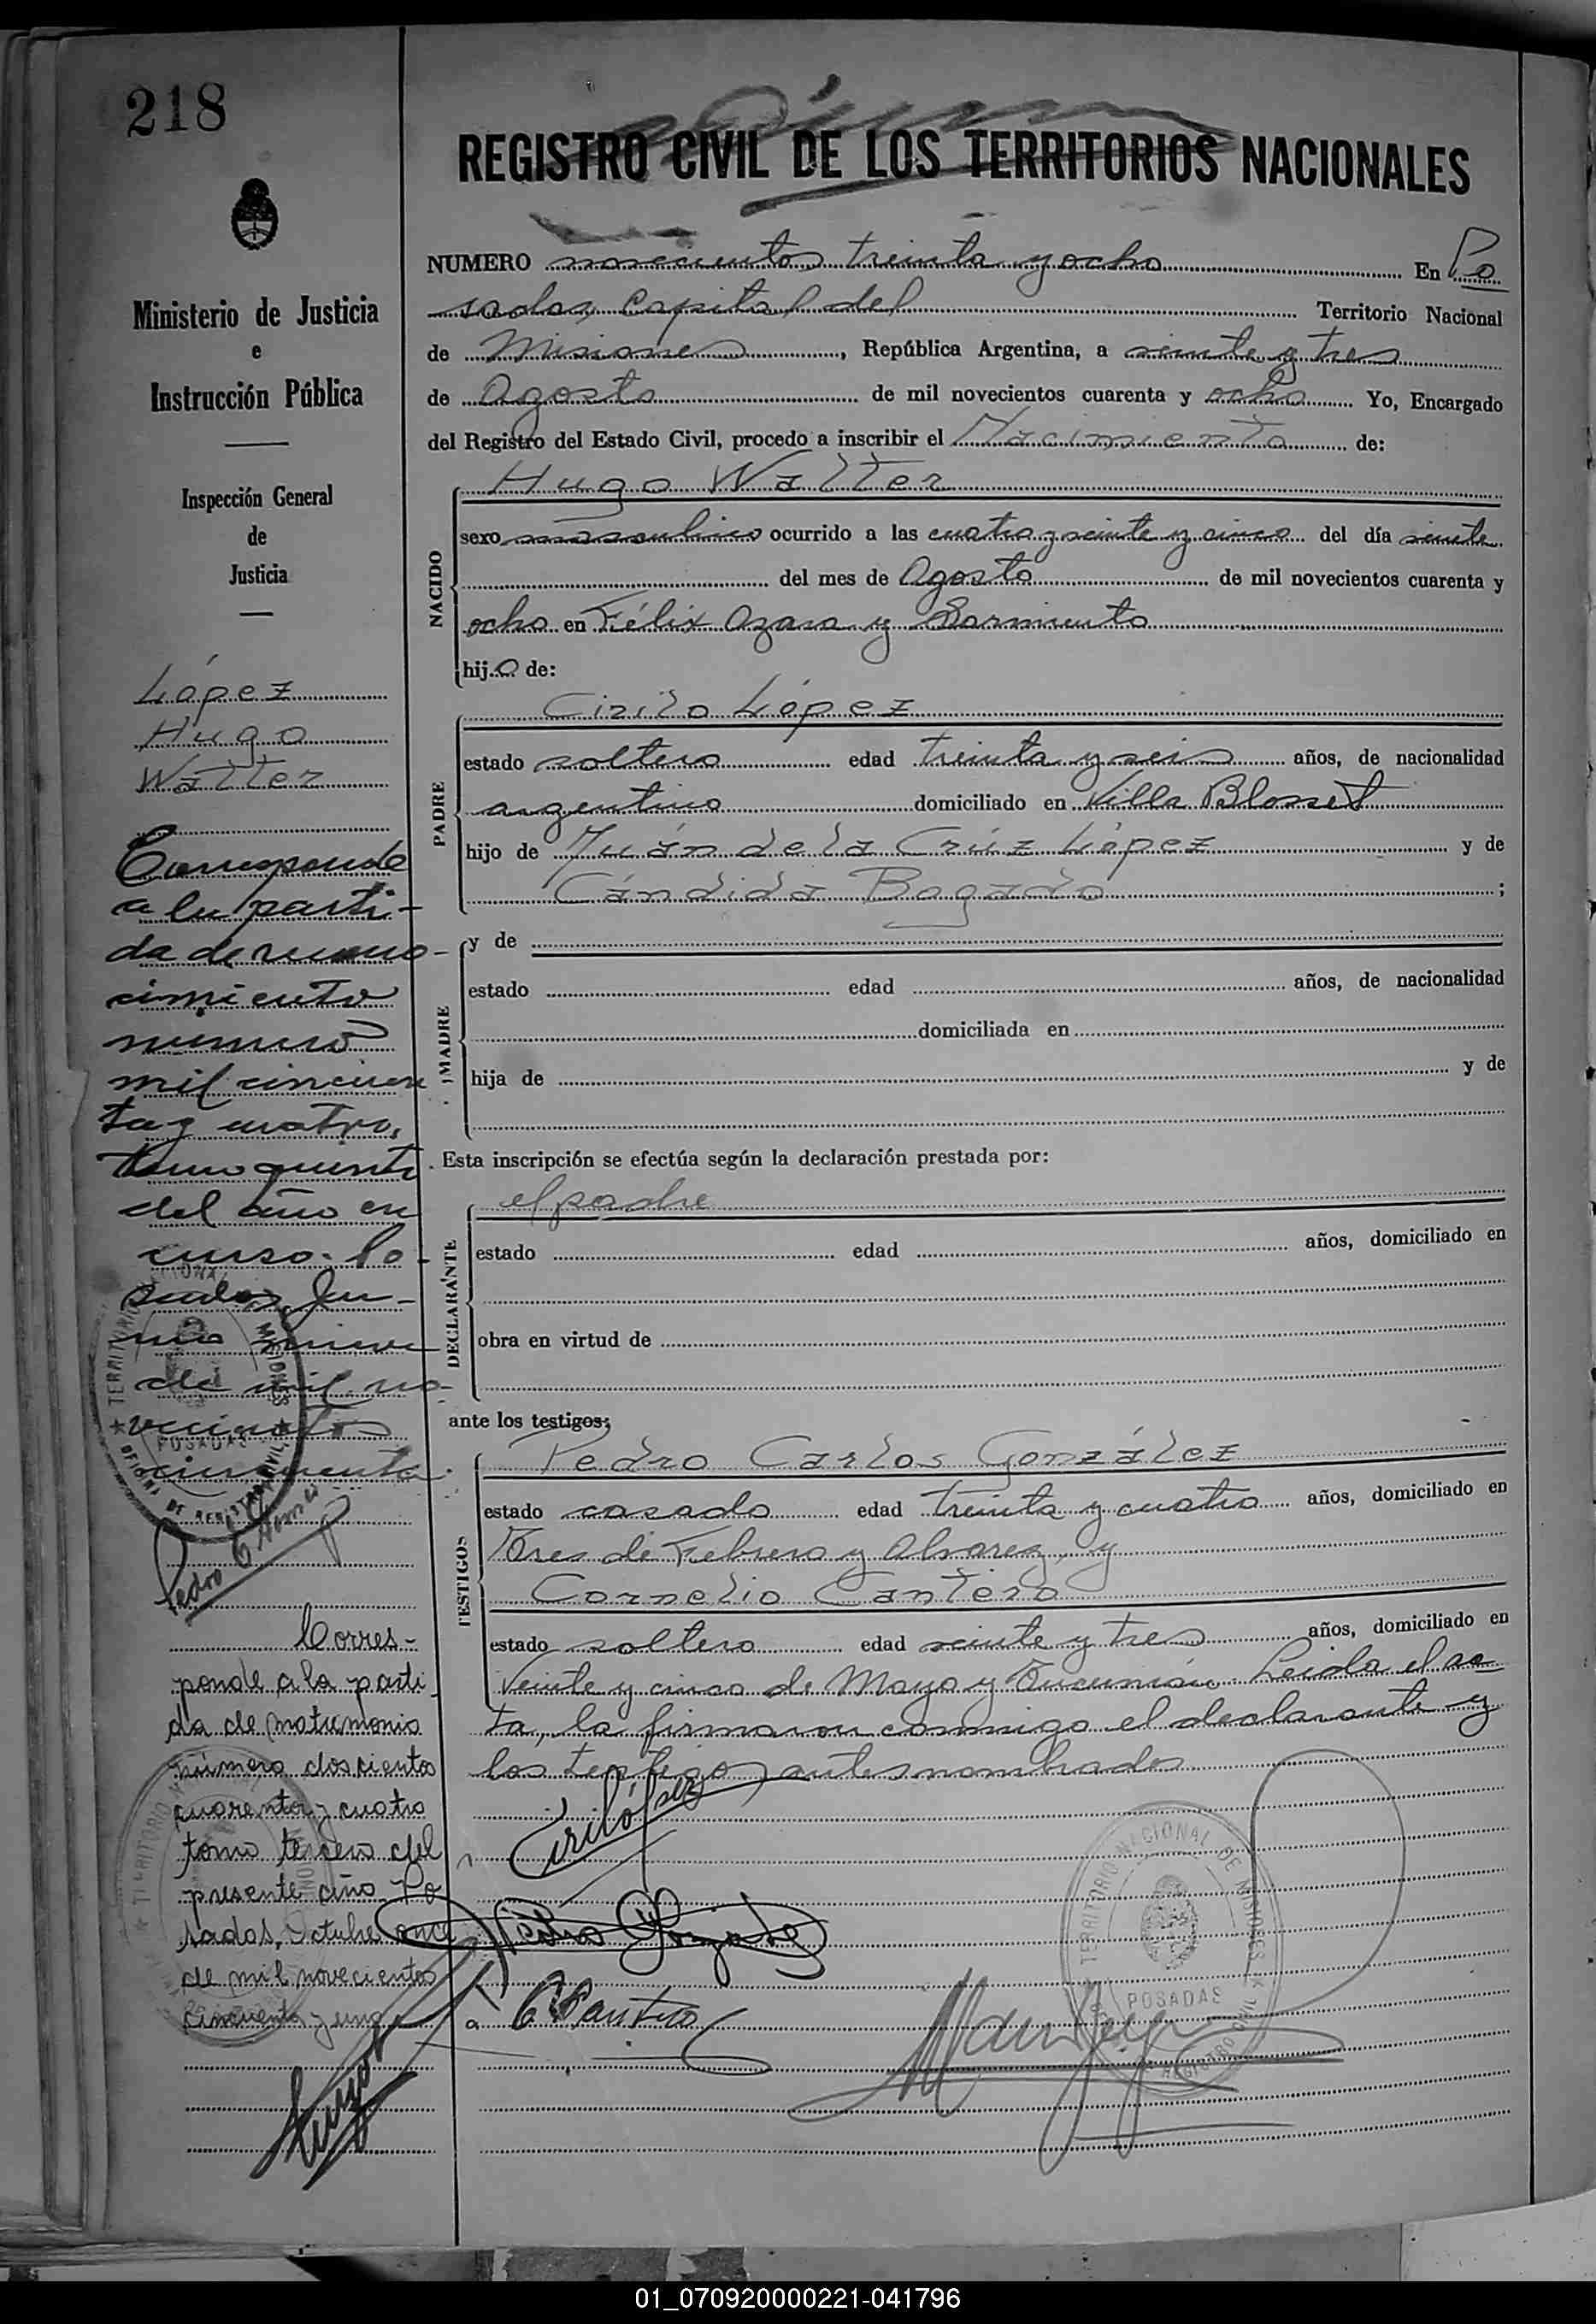 218
REGISTRO CIVIL DE LOS TERRITORIOS NACIONALES
Ministerio de Justicia
e
Instrucción Pública
Inspección General
de
Justicia
López
Hugo
Walter
Corresponde
a la parti-
da de recono-
cimiento
número
mil cincuen
ta y cuatro,
tomo quinto
del año en
curso. Po-
sadas, Junio
nueve
de mil no-
vecientos
cincuenta.
Pedro
Corres-
ponde a la parti-
da de matrimonio
número doscientos
cuarenta y cuatro
tomo tercero del
presente año. Po
sadas, Octubre once
de mil novecientos
cincuenta y uno
NUMERO novecientos treinta y ocho En Po
sadas, Capital del Territorio Nacional
de Misiones, República Argentina, a veinte y tres
de Agosto de mil novecientos cuarenta y ocho Yo, Encargado
del Registro del Estado Civil, procedo a inscribir el Nacimiento de:
NACIDO
Hugo Walter
sexo masculino ocurrido a las cuatro y veinte y cinco del día veinte
del mes de Agosto de mil novecientos cuarenta y
ocho en Félix Azara y Sarmiento
hijo de:
PADRE
Cirilo López
estado soltero edad treinta y seis años, de nacionalidad
argentino domiciliado en Villa Blosset
hijo de Juán de la Crúz López y de
Cándida Bogado ;
MADRE
y de
estado edad años, de nacionalidad
domiciliada en
hija de y de
Esta inscripción se efectúa según la declaración prestada por:
DECLARANTE
el padre
estado edad años, domiciliado en
obra en virtud de
ante los testigos:
TESTIGOS
Pedro Carlos González
estado casado edad treinta y cuatro años, domiciliado en
Tres de Febrero y Alvarez, y
Cornelio Cantero
estado soltero edad veinte y tres años, domiciliado en
Veinte y cinco de Mayo y Tucumán. Leida el ac
ta, la firmaron conmigo el declarante y
los testigos antes nombrados
Cirilo López
Pedro González
C Cantero
TERRITORIO NACIONAL DE MISIONES
POSADAS
REGISTRO CIVIL
01_070920000221-041796